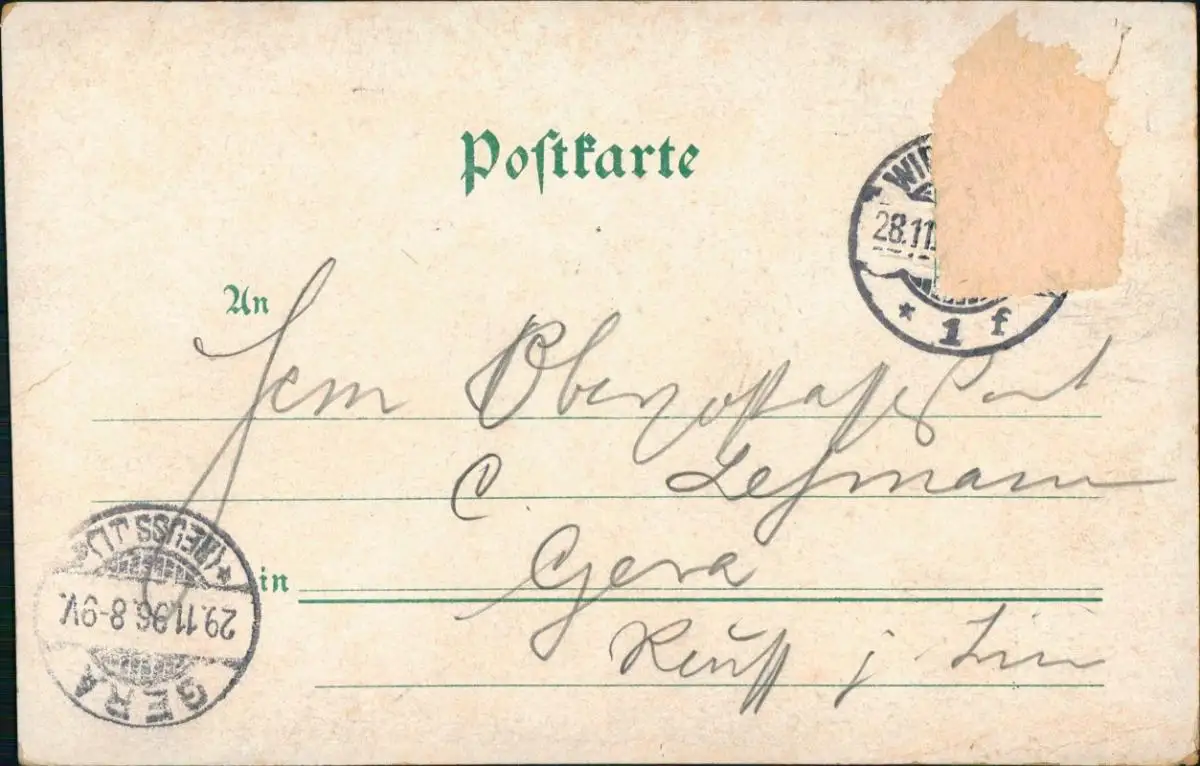 Postkarte
WIE
28.11.
* 1 f
An
Herrn Oberpostassistent
C Lehmann
in Gera
Reuss j. Linie
* (REUSS J.L.)
29.11.96.8-9V.
GERA